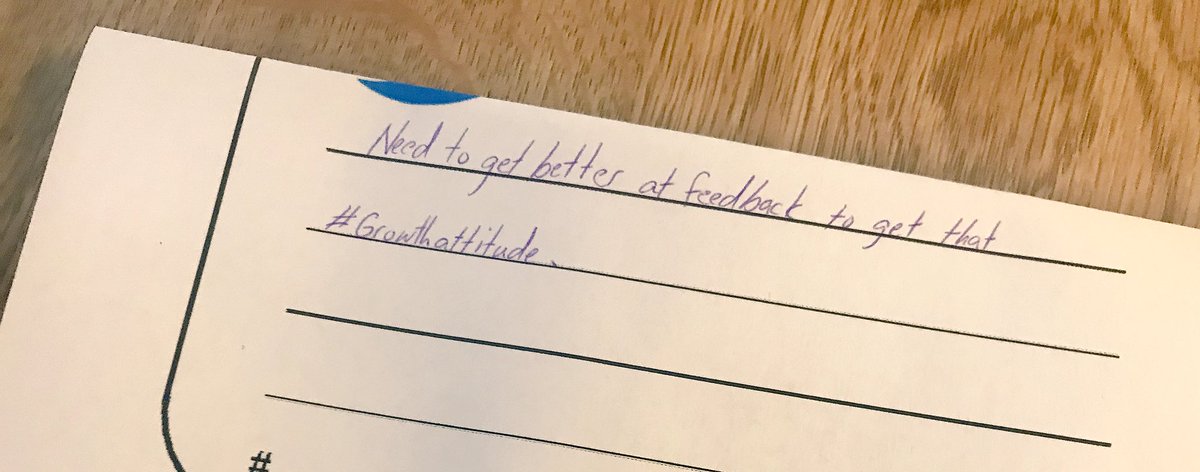 Need to get better at feedback to get that
#Growthattitude.
#